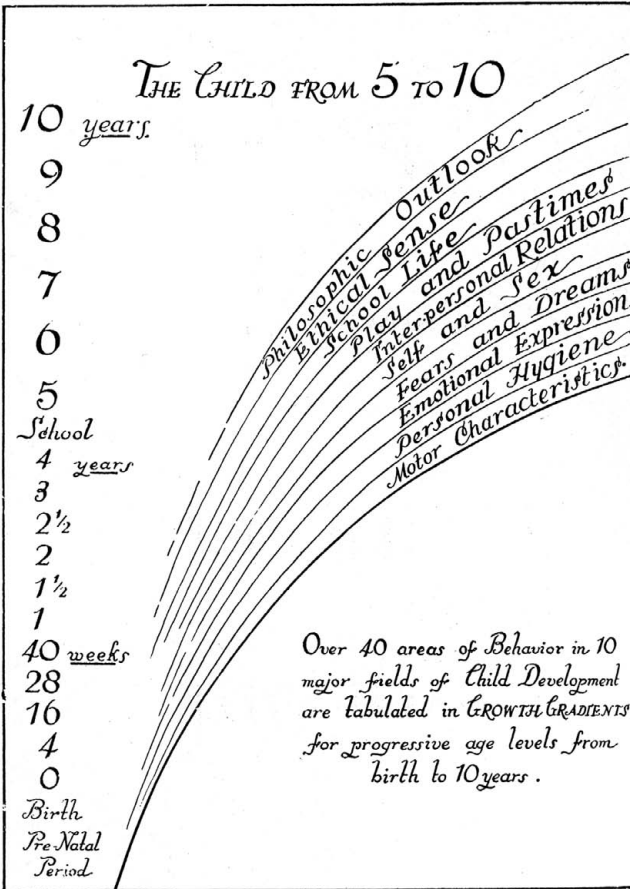 THE CHILD FROM 5 TO 10
10 years
9
8
7
6
5
School
4 years
3
2½
2
1½
1
40 weeks
28
16
4
0
Birth
Pre Natal
Period
Philosophic Outlook
Ethical Sense
School Life
Play and Pastimes
Interpersonal Relations
Self and Sex
Fears and Dreams
Emotional Expression
Personal Hygiene
Motor Characteristics.
Over 40 areas of Behavior in 10
major fields of Child Development
are tabulated in GROWTH GRADIENTS
for progressive age levels from
birth to 10 years.